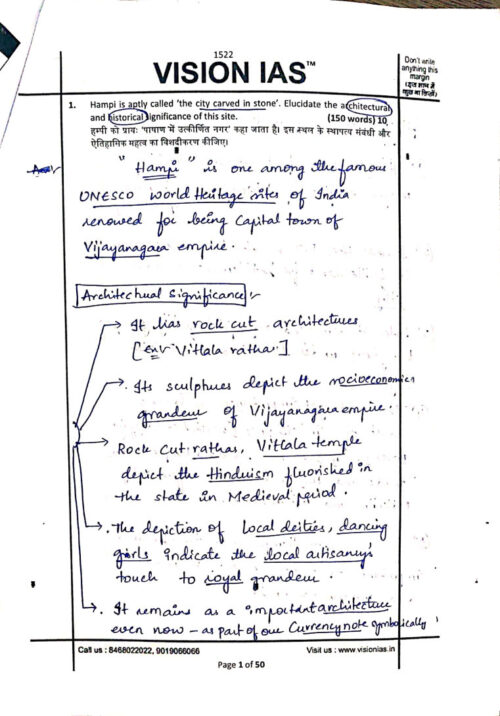 1522
VISION IAS™
Don't write anything this margin
(इस भाग में कुछ ना लिखें)
1. Hampi is aptly called 'the city carved in stone'. Elucidate the architectural
and historical significance of this site. (150 words) 10
हम्पी को प्रायः 'पाषाण में उत्कीर्णित नगर' कहा जाता है। इस स्थल के स्थापत्य संबंधी और
ऐतिहासिक महत्व का विशदीकरण कीजिए।
"Hampi" is one among the famous
UNESCO World Heritage sites of India
renowed for being Capital town of
Vijayanagara empire.
Architechual Significance
It has rock cut architectures
[ Vittala ratha]
Its sculptures depict the socioeconomic
grandeur of Vijayanagara empire.
Rock cut rathas, Vittala temple
depict the Hinduism fluorished in
the state in Medieval period.
The depiction of local deities, dancing
girls indicate the local artisanry's
touch to royal grandeur.
It remains as a important architecture
even now - as part of our Currency note symbolically
Call us : 8468022022, 9019066066
Visit us : www.visionias.in
Page 1 of 50